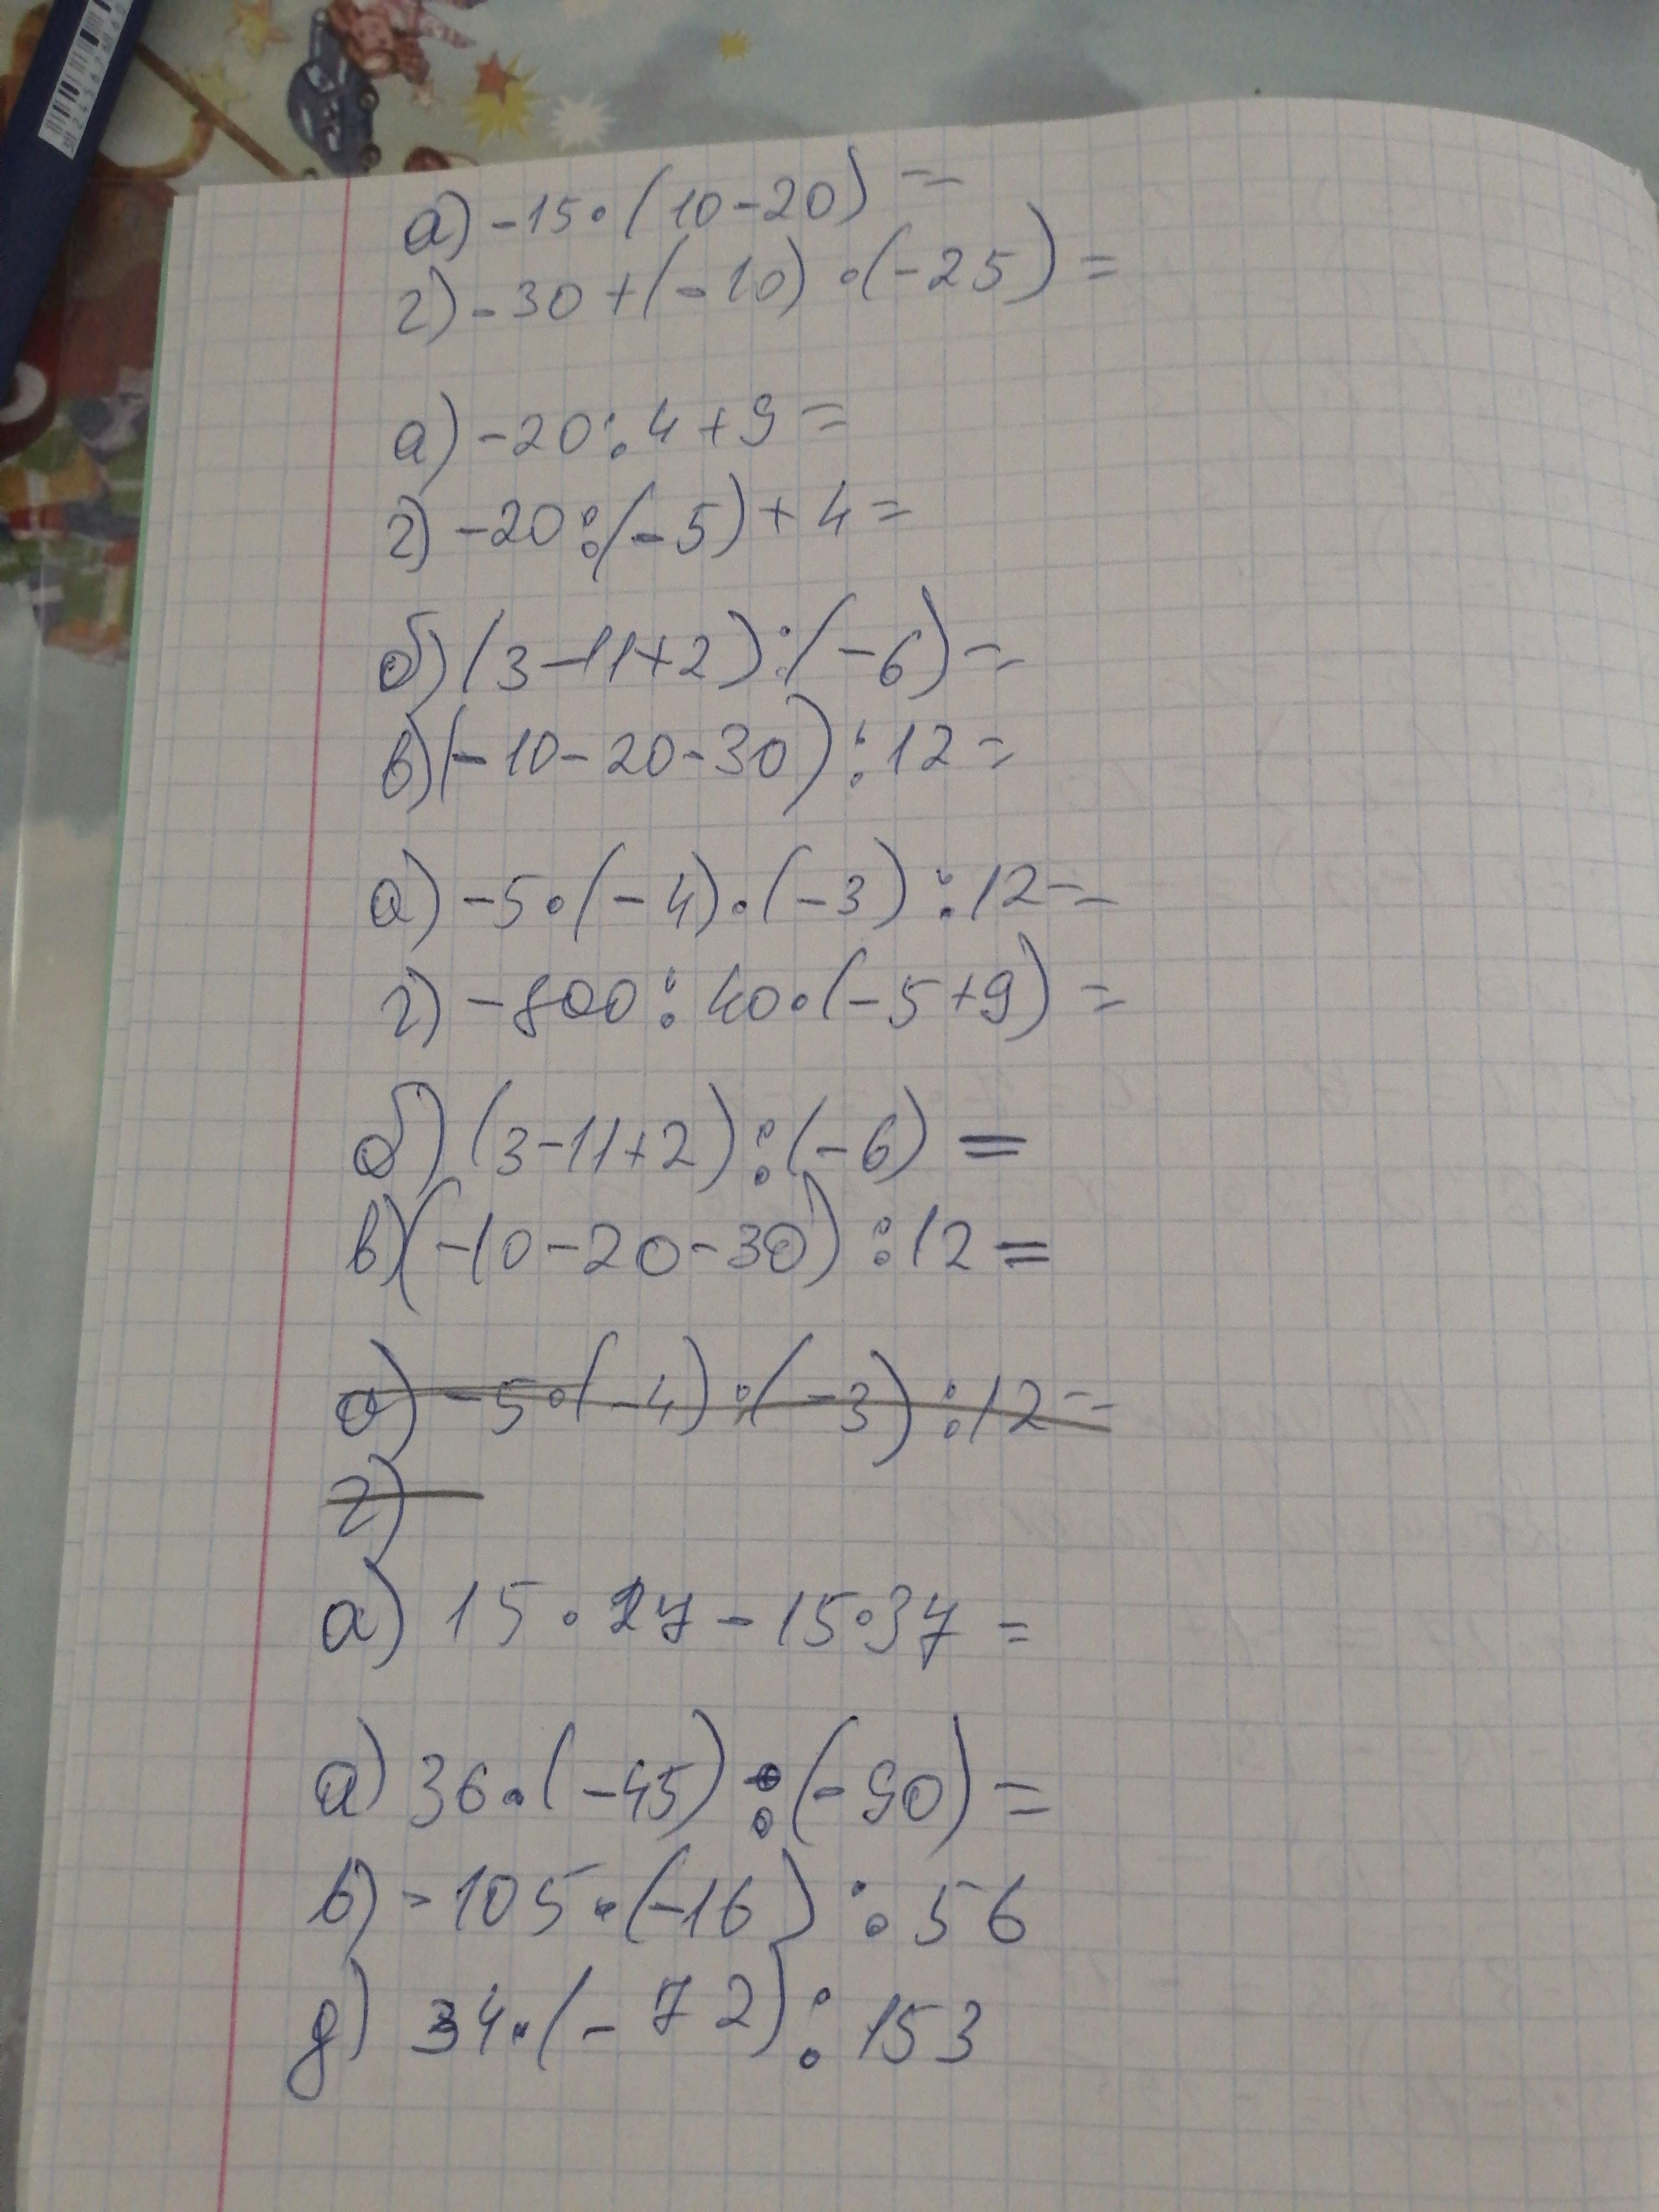 а) -15·(10-20) =
г) -30+(-10)·(-25) =
а) -20:4+9=
г) -20:(-5)+4=
б) (3-11+2):(-6)=
в) (-10-20-30):12=
а) -5·(-4)·(-3):12=
г) -800:40·(-5+9) =
б) (3-11+2):(-6) =
в) (-10-20-30):12=
а) -5·(-4):(-3):12=
г)
а) 15·27-15·37=
а) 36·(-45):(-90)=
в) -105·(-16):56
д) 34·(-72):153